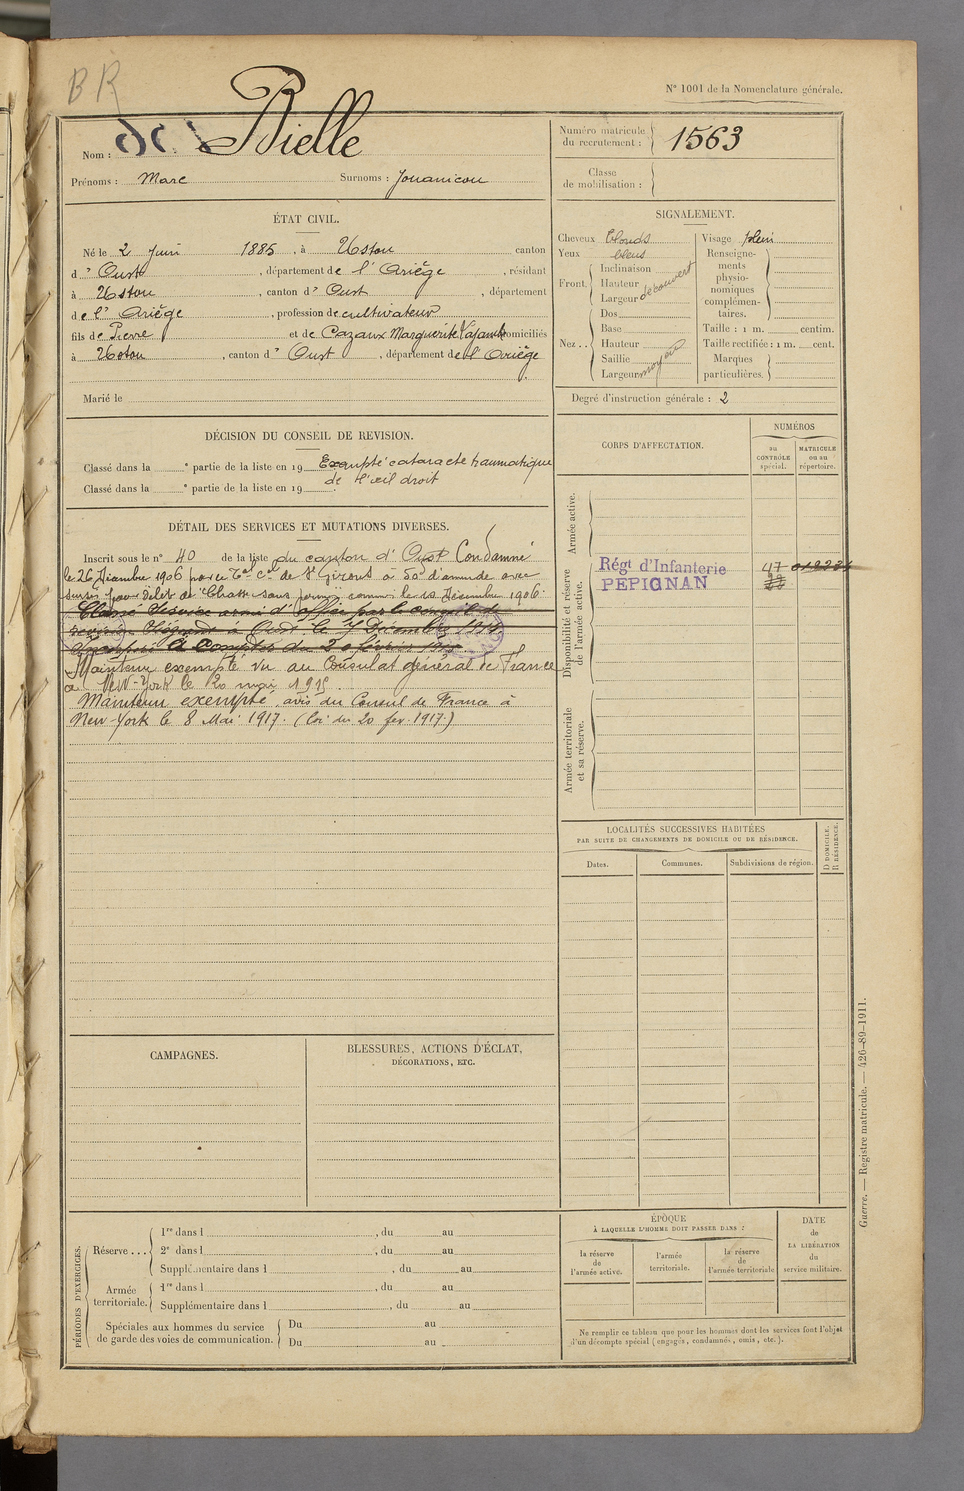 BR
N° 1001 de la Nomenclature générale.
Nom : Bielle
Prénoms : Marc Surnoms : Jouanicou
Numéro matricule du recrutement : 1563
Classe de mobilisation :
ÉTAT CIVIL.
Né le 2 Juin 1885, à Ustou canton
d' Oust, département de l'Ariège, résidant
à Ustou, canton d' Oust, département
de l'Ariège, profession de cultivateur
fils de Pierre et de Cazaux Marguerite domiciliés
à Ustou, canton d' Oust, département de l'Ariège
Marié le
SIGNALEMENT.
Cheveux blonds
Yeux bleus
Front. Inclinaison
Hauteur
Largeur découvert
Nez.. Dos
Base
Hauteur
Saillie
Largeur moyen
Visage plein
Renseignements physionomiques complémentaires.
Taille : 1 m. centim.
Taille rectifiée : 1 m. cent.
Marques particulières.
Degré d'instruction générale : 2
DÉCISION DU CONSEIL DE REVISION.
Classé dans la e partie de la liste en 19 Exempté cataracte traumatique
Classé dans la e partie de la liste en 19 de l'œil droit
DÉTAIL DES SERVICES ET MUTATIONS DIVERSES.
Inscrit sous le n° 40 de la liste du canton d' Oust Condamné
le 26 Décembre 1906 par le de St Girons à 50f d'amende avec
sursis pour délit de Chasse sans permis commis le 10 Décembre 1906.
Classé Service armé par le conseil de
à Oust le 7 Décembre 1914
à compter du 20 février 1915
Maintenu exempté vu au Consulat général de France
à New-York le 20 mai 1915
Maintenu exempté, avis du Consul de France à
New-York le 8 Mai 1917. (loi du 20 fév. 1917.)
CORPS D'AFFECTATION.
NUMÉROS
au CONTRÔLE spécial.
MATRICULE ou au répertoire.
Armée active.
Disponibilité et réserve de l'armée active.
Régt d'Infanterie
PEPIGNAN
47
Armée territoriale et sa réserve.
LOCALITÉS SUCCESSIVES HABITÉES
PAR SUITE DE CHANGEMENTS DE DOMICILE OU DE RÉSIDENCE.
Dates.
Communes.
Subdivisions de région.
D DOMICILE. R RÉSIDENCE.
CAMPAGNES.
BLESSURES, ACTIONS D'ÉCLAT,
DÉCORATIONS, ETC.
PÉRIODES D'EXERCICES.
Réserve...
1re dans l , du au
2e dans l , du au
Supplémentaire dans l , du au
Armée territoriale.
1re dans l , du au
Supplémentaire dans l , du au
Spéciales aux hommes du service de garde des voies de communication.
Du au
Du au
ÉPOQUE
À LAQUELLE L'HOMME DOIT PASSER DANS :
la réserve de l'armée active.
l'armée territoriale.
la réserve de l'armée territoriale
DATE de LA LIBÉRATION du service militaire.
Ne remplir ce tableau que pour les hommes dont les services font l'objet
d'un décompte spécial (engagés, condamnés, omis, etc.).
Guerre. — Registre matricule. — 426-89-1911.